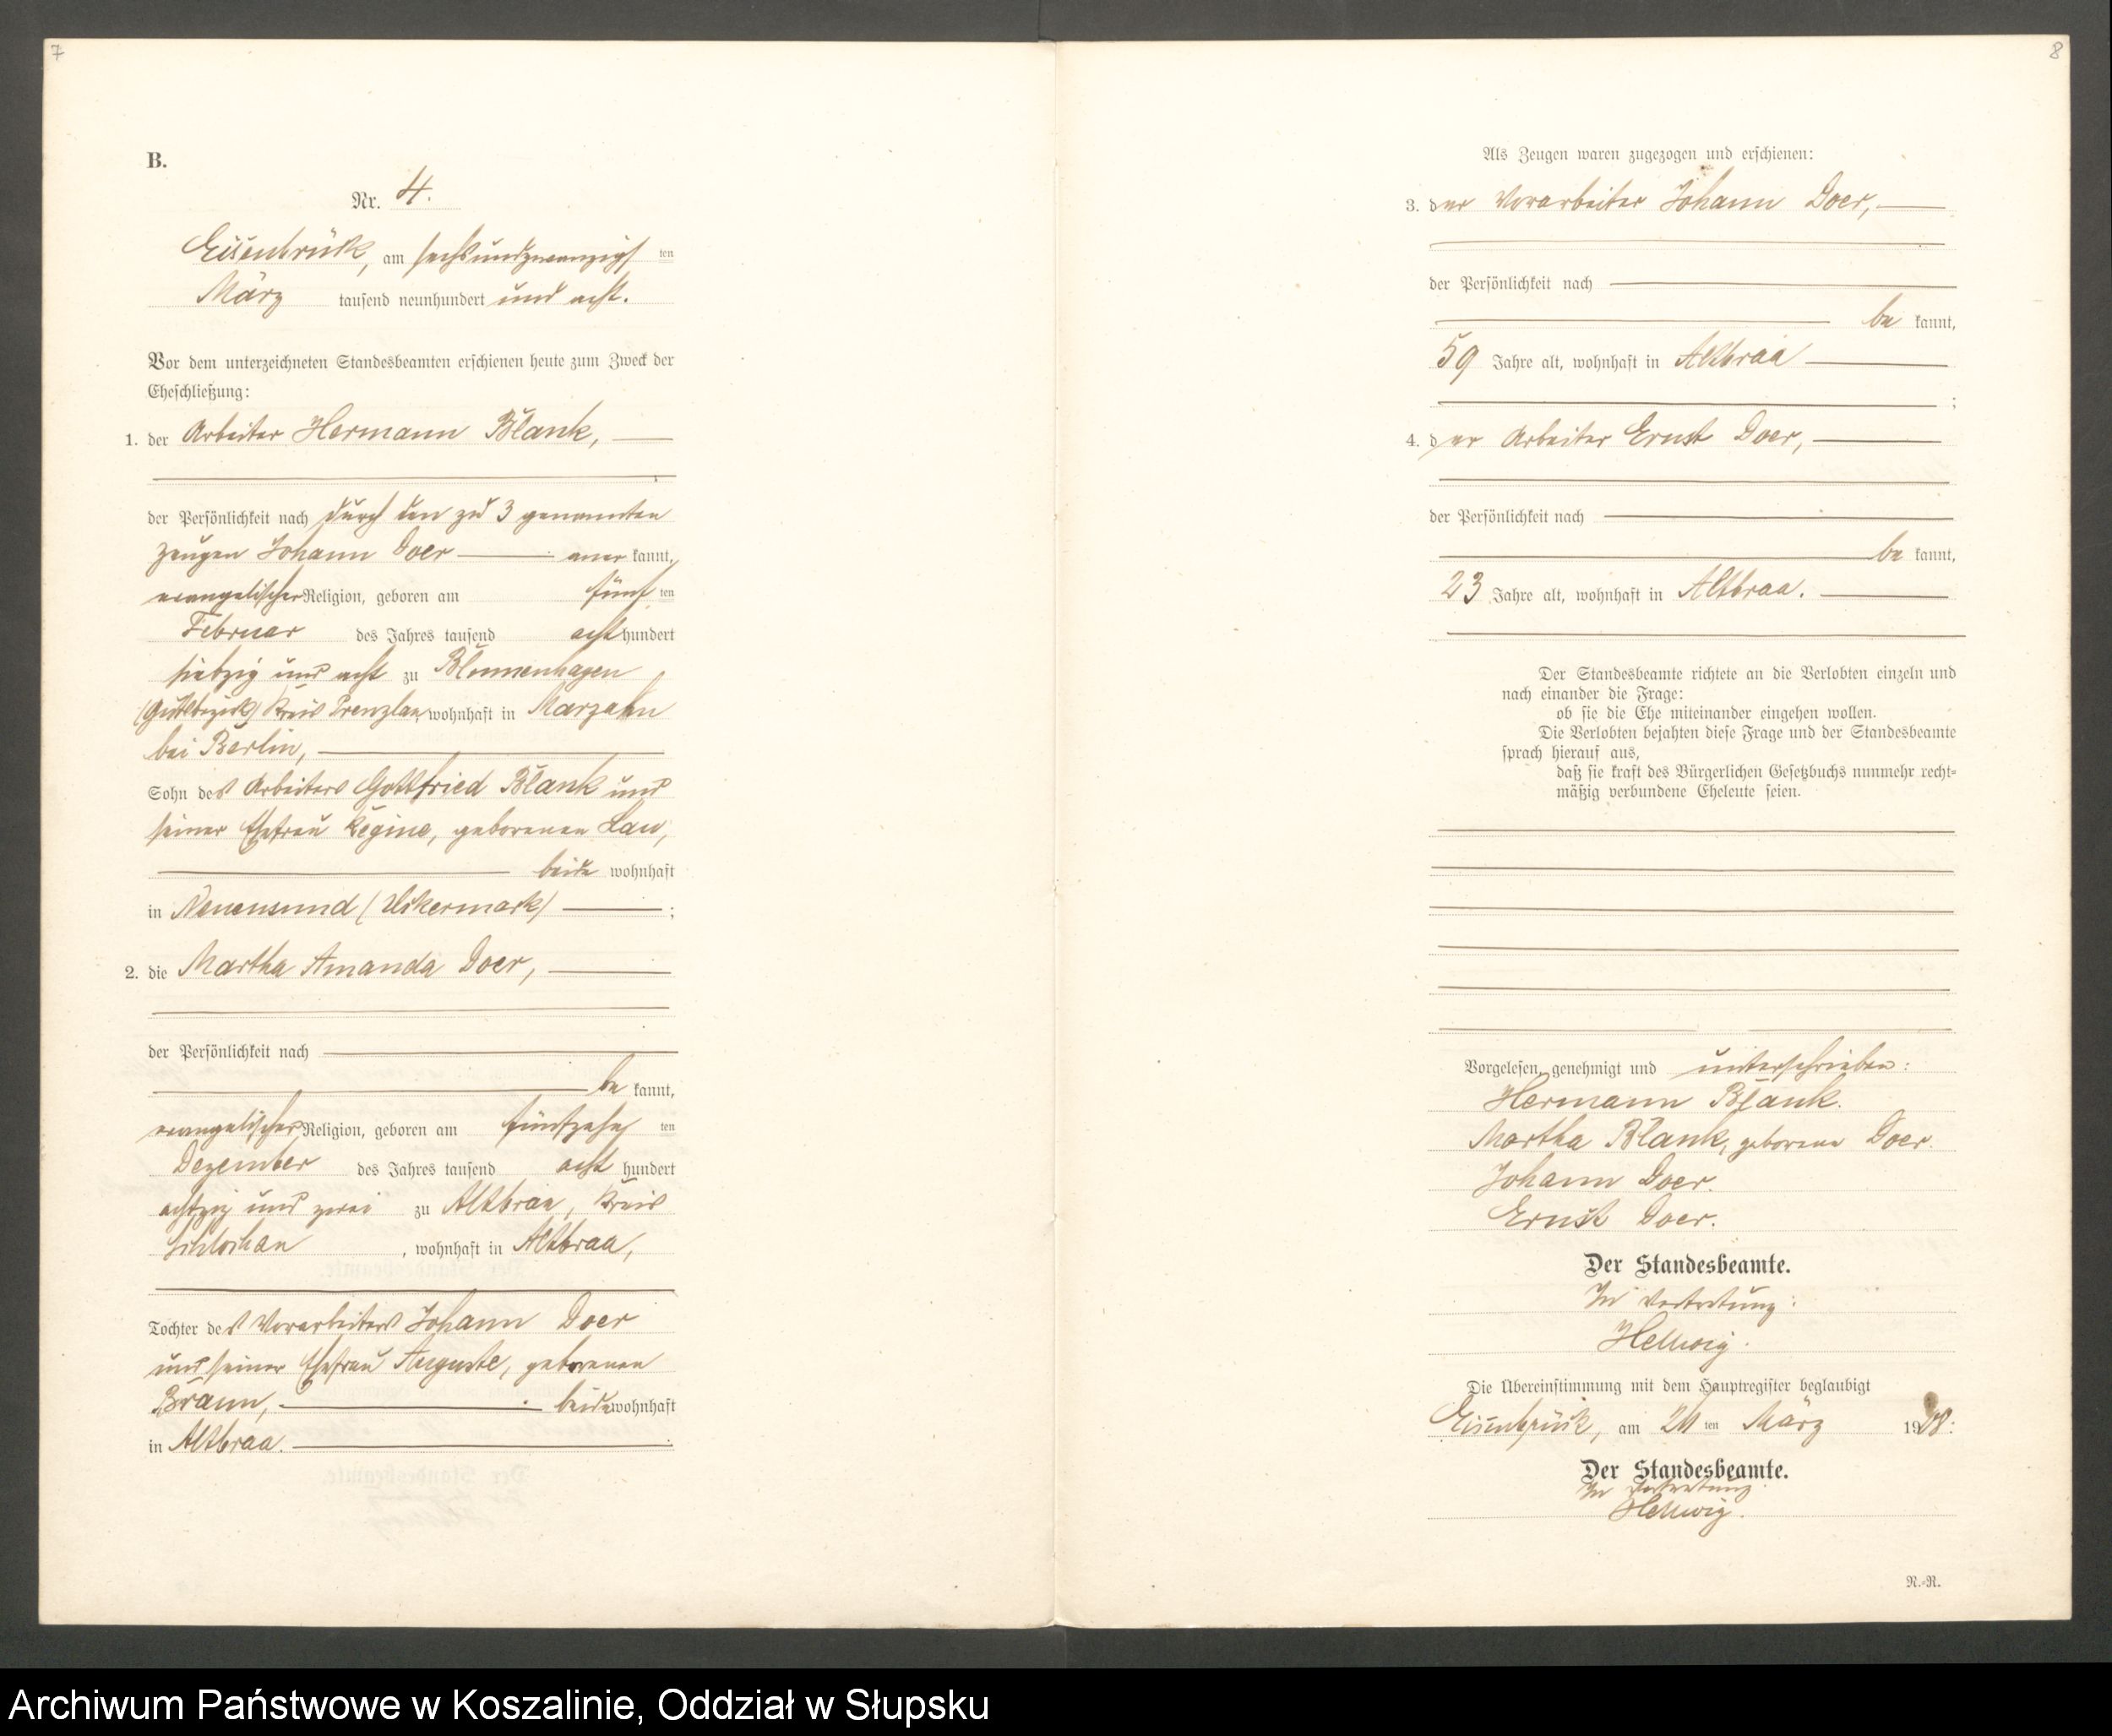 7
B.
Nr. 4.
Eisenbrück, am sechsundzwanzigsten
März tausend neunhundert und acht.
Vor dem unterzeichneten Standesbeamten erschienen heute zum Zweck der
Eheschließung:
1. der Arbeiter Hermann Blank,
der Persönlichkeit nach durch den zu 3 genannten
Zeugen Johann Doer anerkannt,
evangelischer Religion, geboren am fünften
Februar des Jahres tausend achthundert
siebzig und acht zu Blumenhagen
(Gutsbezirk) Kreis Prenzlau, wohnhaft in Marzahn
bei Berlin,
Sohn des Arbeiters Gottfried Blank und
seiner Ehefrau Regine, geborenen Lau,
beide wohnhaft
in Neuensund (Uckermark);
2. die Martha Amanda Doer,
der Persönlichkeit nach
bekannt,
evangelischer Religion, geboren am fünfzehnten
Dezember des Jahres tausend acht hundert
achtzig und zwei zu Altbraa, Kreis
Schlochau, wohnhaft in Altbraa,
Tochter des Vorarbeiters Johann Doer
und seiner Ehefrau Auguste, geborenen
Braun, beide wohnhaft
in Altbraa.
8
Als Zeugen waren zugezogen und erschienen:
3. der Vorarbeiter Johann Doer,
der Persönlichkeit nach
bekannt,
59 Jahre alt, wohnhaft in Altbraa
;
4. der Arbeiter Ernst Doer,
der Persönlichkeit nach
bekannt,
23 Jahre alt, wohnhaft in Altbraa.
Der Standesbeamte richtete an die Verlobten einzeln und
nach einander die Frage:
ob sie die Ehe miteinander eingehen wollen.
Die Verlobten bejahten diese Frage und der Standesbeamte
sprach hierauf aus,
daß sie kraft des Bürgerlichen Gesetzbuchs nunmehr recht=
mäßig verbundene Eheleute seien.
Vorgelesen, genehmigt und unterschrieben:
Hermann Blank.
Martha Blank, geborene Doer.
Johann Doer.
Ernst Doer.
Der Standesbeamte.
In Vertretung:
Hellwig.
Die Übereinstimmung mit dem Hauptregister beglaubigt
Eisenbrück, am 26ten März 1908.
Der Standesbeamte.
In Vertretung.
Hellwig.
R.=R.
Archiwum Państwowe w Koszalinie, Oddział w Słupsku